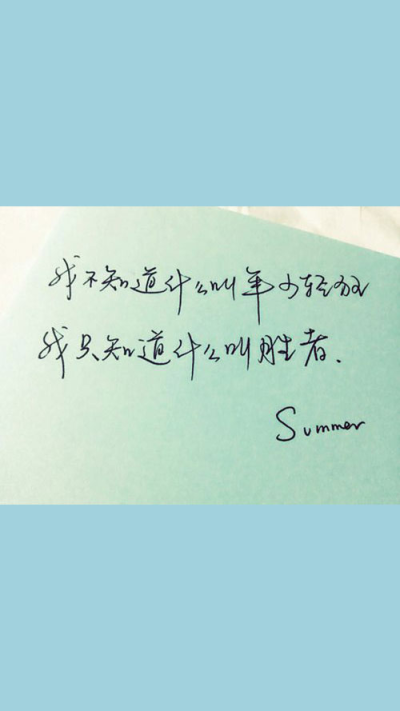 我不知道什么叫年少轻狂
我只知道什么叫胜者.
Summer